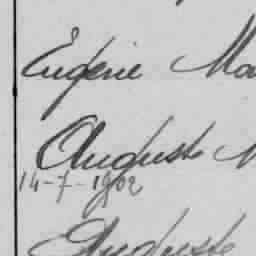 Eugénie Ma
Auguste M
14-7-1902
Auguste